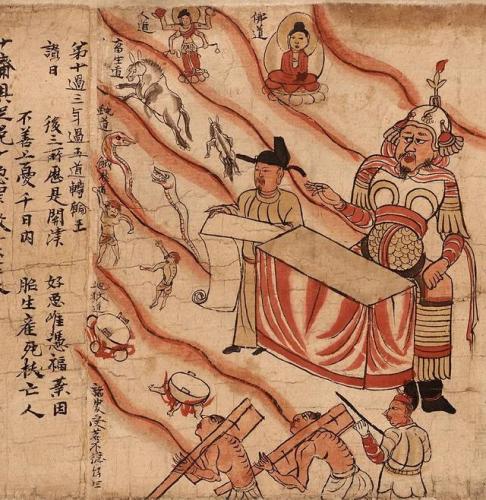 佛道
人道
畜生道
餓鬼道
地獄道
第十過三年過五道轉輪王
讃曰 後三所歷是關津 好惡唯憑福業因
不善上憂千日內 胎生產死拔亡人
十齋具足免十惡罪放